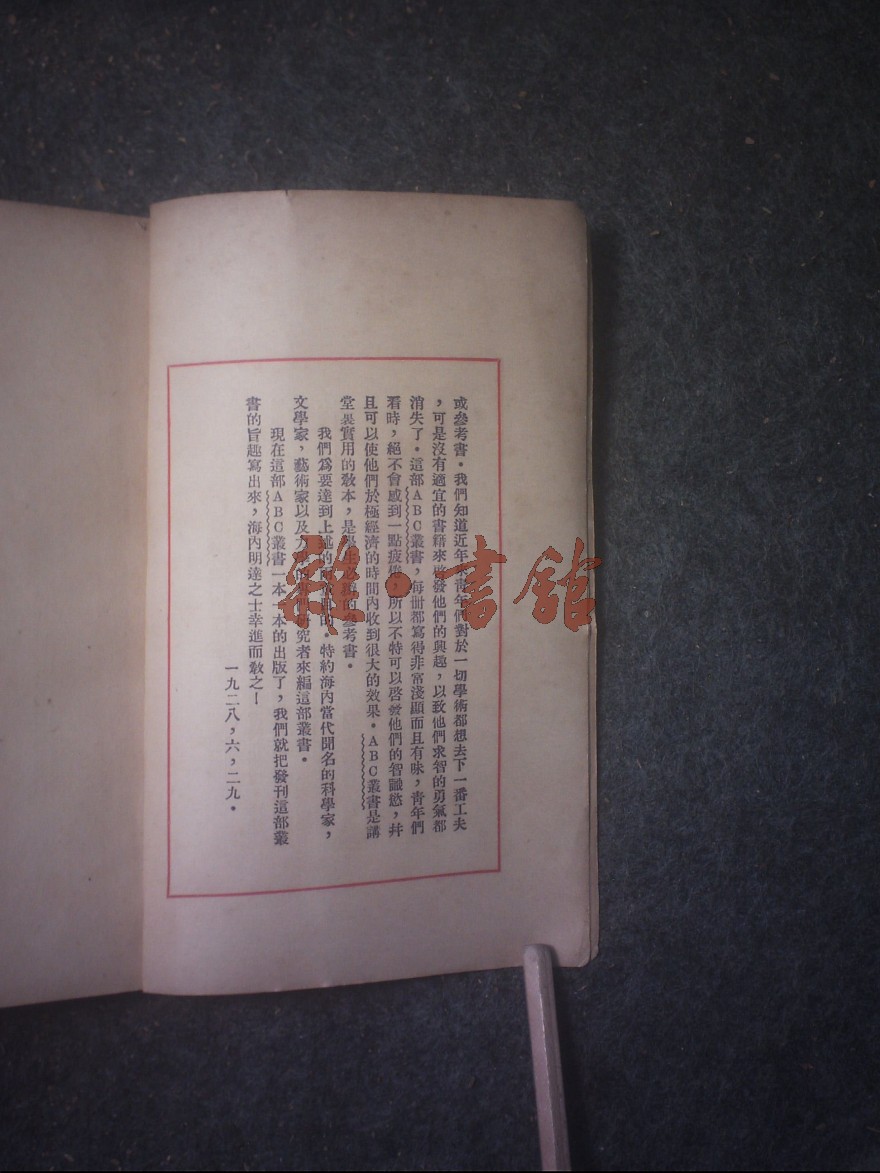 或參考書。我們知道近年來青年們對於一切學術都想去下一番工夫
，可是沒有適宜的書籍來啓發他們的興趣，以致他們求智的勇氣都
消失了。這部ABC叢書，每册都寫得非常淺顯而且有味，青年們
看時，絕不會感到一點疲倦，所以不特可以啓發他們的智識慾，幷
且可以使他們於極經濟的時間內收到很大的效果。ABC叢書是講
堂裏實用的敎本，是學生必的參考書。
我們爲要達到上述的目的。特約海內當代聞名的科學家，
文學家，藝術家以及力研究者來編這部叢書。
現在這部ABC叢書一本一本的出版了，我們就把發刊這部叢
書的旨趣寫出來，海內明達之士幸進而敎之！
一九二八，六，二九。
雜·書館